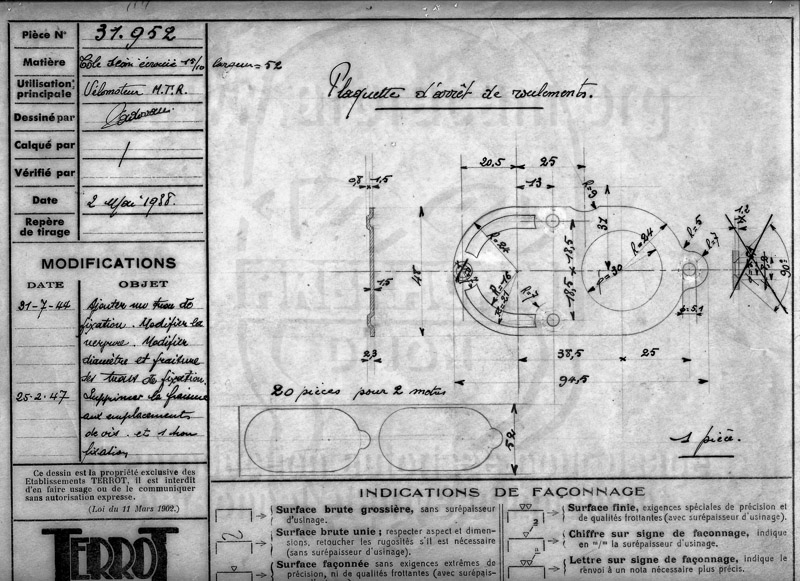 Pièce N° 31.952
Matière Tôle acier écrouie 15/10 largeur = 52
Utilisation principale Vélomoteur M.T.R.
Dessiné par
Calqué par
Vérifié par
Date 2 Mai 1938.
Repère de tirage
MODIFICATIONS
DATE OBJET
21-7-44 Ajouter un trou de
fixation. Modifier la
nervure. Modifier
diamètre et fraisure
des trous de fixation.
25-2-47 Supprimer la fraisure
aux emplacements
de vis et 1 trou
fixation
Ce dessin est la propriété exclusive des
Etablissements TERROT, il est interdit
d'en faire usage ou de le communiquer
sans autorisation expresse.
(Loi du 11 Mars 1902.)
TERROT
Plaquette d'arrêt de roulements.
20,5 25
13
0,8 1,5
R=9
31
R=24
R=24
R=5
R=7
1,2
90°
48
1,5
R=16
R=21
R=7
18,5 x 18,5
φ=30
φ=5,1
2,3
38,5 25
94,5
20 pièces pour 2 mètres
52
1 pièce.
INDICATIONS DE FAÇONNAGE
Surface brute grossière, sans surépaisseur
d'usinage.
Surface brute unie; respecter aspect et dimen-
sions, retoucher les rugosités s'il est nécessaire
(sans surépaisseur d'usinage).
Surface façonnée sans exigences extrêmes de
précision, ni de qualités frottantes (avec surépais-
Surface finie, exigences spéciales de précision et
de qualités frottantes (avec surépaisseur d'usinage).
Chiffre sur signe de façonnage, indique
en m/m la surépaisseur d'usinage.
Lettre sur signe de façonnage, indique le
renvoi à un nota nécessaire plus précis.